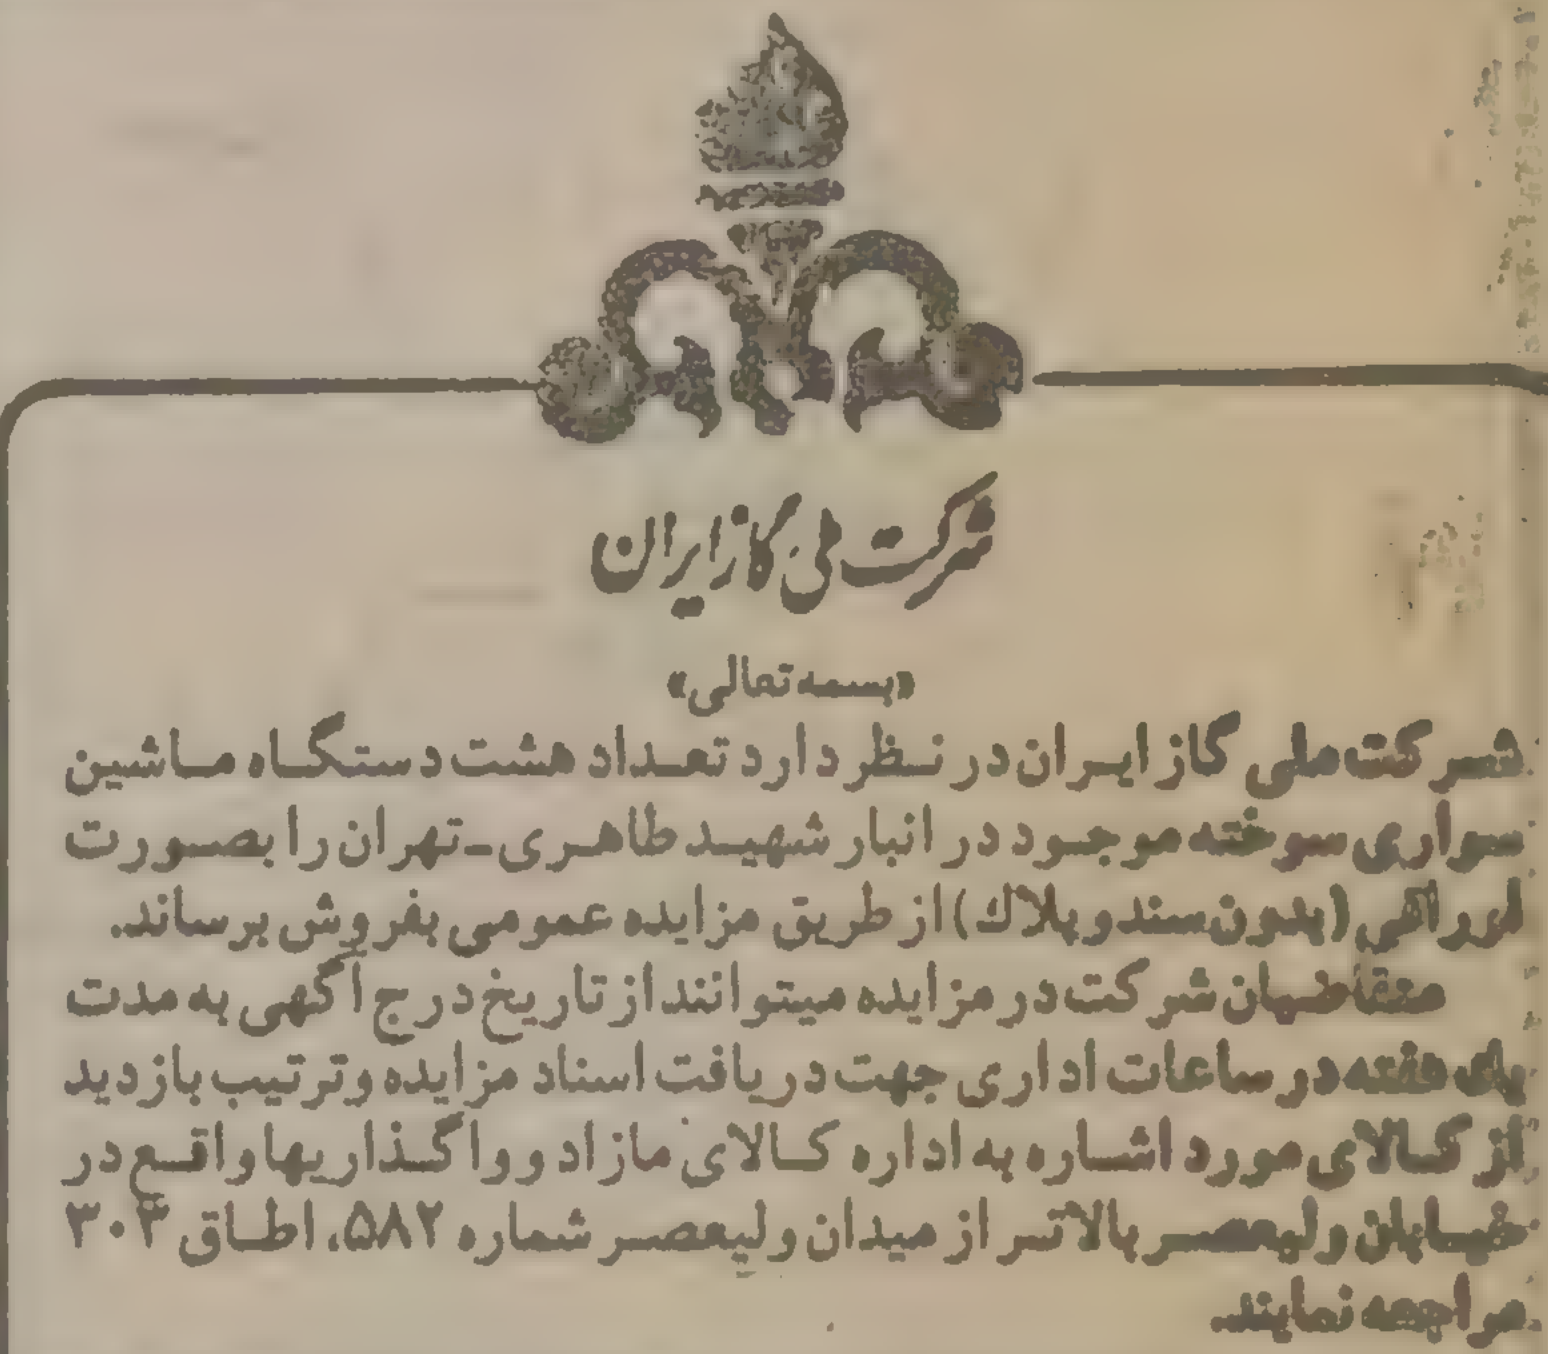 شرکت ملی گاز ایران
«بسمه تعالی»
شرکت ملی گاز ایران در نظر دارد تعداد هشت دستگاه ماشین
سواری سوخته موجود در انبار شهید طاهری ـ تهران را بصورت
اوراقی (بدون سند و پلاک) از طریق مزایده عمومی بفروش برساند.
متقاضیان شرکت در مزایده میتوانند از تاریخ درج آگهی به مدت
یک هفته در ساعات اداری جهت دریافت اسناد مزایده و ترتیب بازدید
از کالای مورد اشاره به اداره کالای مازاد و واگذاریها واقع در
خیابان ولیعصر بالاتر از میدان ولیعصر شماره ۵۸۲، اطاق ۳۰۳
مراجعه نمایند.